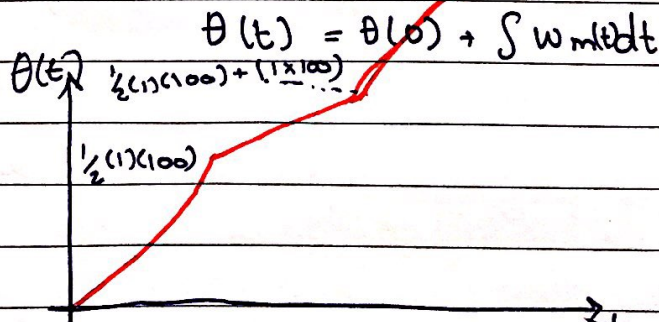 θ(t) = θ(0) + ∫ ωm(t)dt
θ(t) ½(1)(100) + (1×100)
½(1)(100)